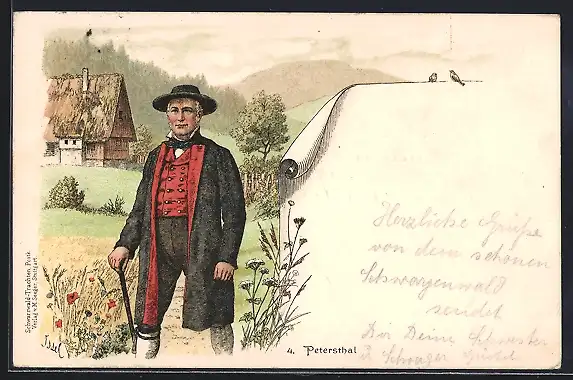 Herzliche Grüße
von dem schönen
Schwarzenwald
sendet
Dir Deine Schwester
u. Schwager Gustel
4. Petersthal
Schwarzwald-Trachten, Punk.
Verlag v. M. Seeger, Stuttgart.